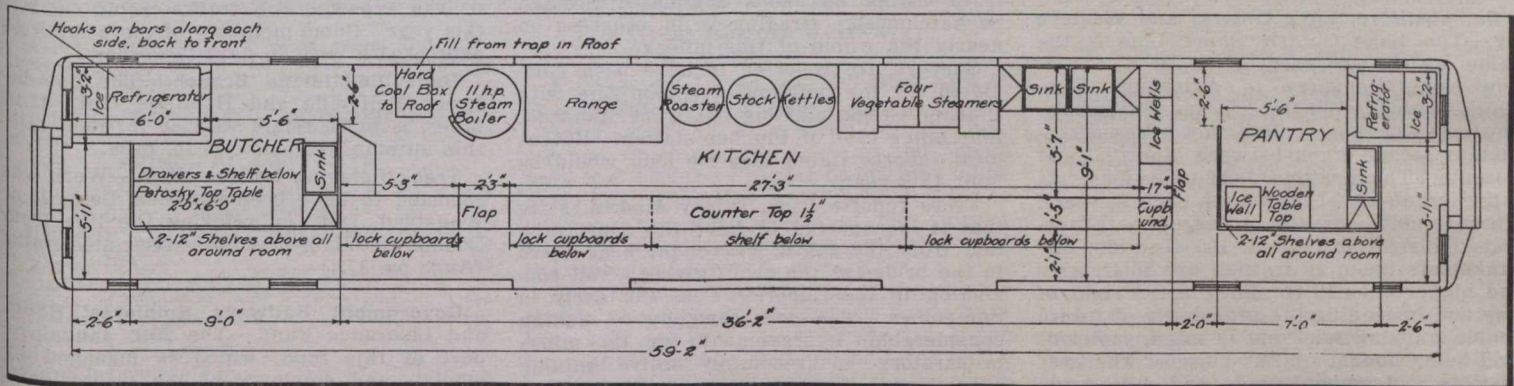 Hooks on bars along each
side, back to front
Fill from trap in Roof
3'-2"
Ice
Refrigerator
6'-0"
5'-6"
2'-6"
Hard
Coal Box
to Roof
11 h.p.
Steam
Boiler
Range
Steam
Roaster
Stock
Kettles
Four
Vegetable Steamers
Sink
Sink
Ice Wells
2'-6"
5'-6"
Refrig-
erator
Ice
3'-2"
BUTCHER
KITCHEN
PANTRY
5'-7"
9'-1"
Drawers & Shelf below
Sink
Petosky Top Table
2'-0"x6'-0"
5'-11"
5'-3"
2'-3"
27'-3"
17"
Flap
Flap
Counter Top 1½"
1'-5"
Cupb
und
Ice
Well
Wooden
Table
Top
Sink
5'-11"
2-12" Shelves above all
around room
lock cupboards
below
lock cupboards
below
shelf below
lock cupboards below
2'-1"
2-12" Shelves above
all around room
2'-6"
9'-0"
36'-2"
2'-0"
7'-0"
2'-6"
59'-2"